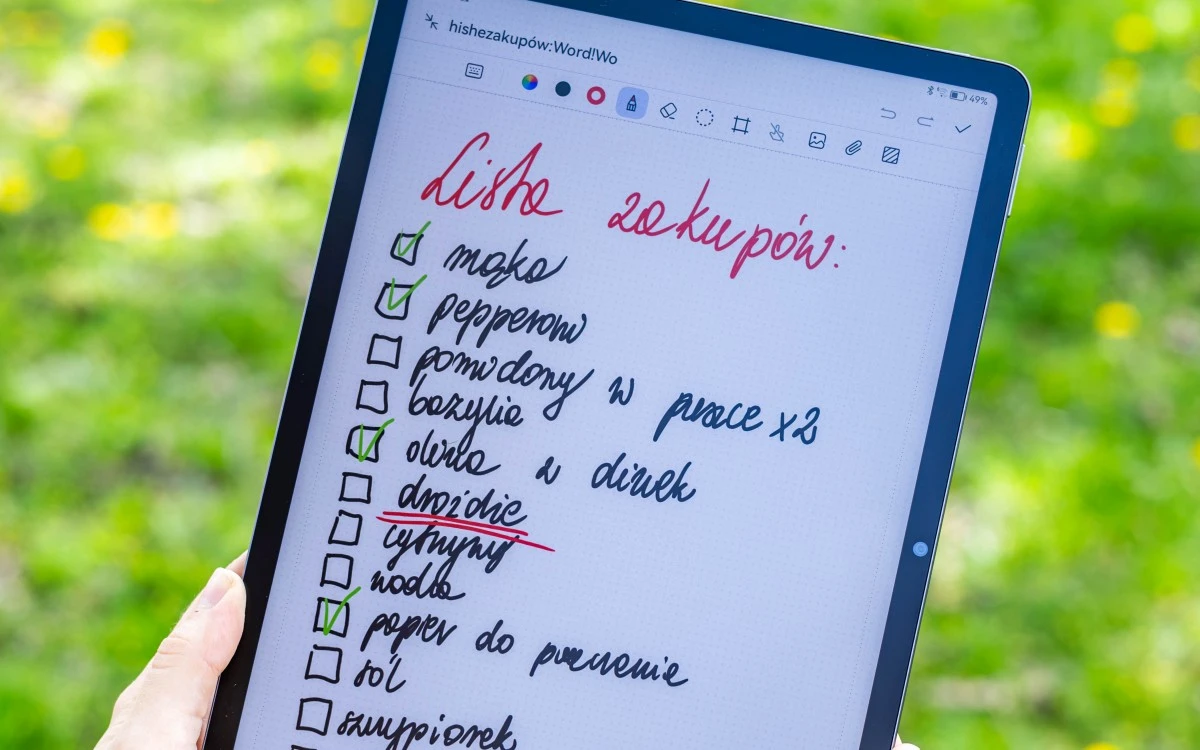 hishezakupów:Word!Wo
49%
Lista zakupów:
mąka
pepperoni
pomidory w puszce x2
bazylia
oliwa z oliwek
drożdże
cytryny
woda
papier do pieczenia
sól
szczypiorek